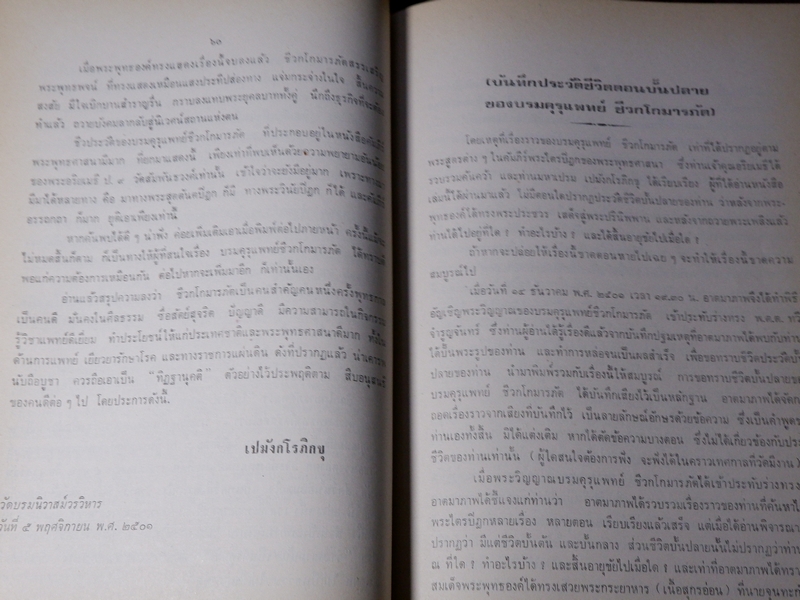 ๖๓
เมื่อพระพุทธองค์ทรงแสดงเรื่องนี้จบลงแล้ว ชีวกโกมารภัจสรรเสริญ
พระพุทธพจน์ ที่ทรงแสดงเหมือนแสงประทีปส่องทาง แจ่มกระจ่างในใจ สิ้นความ
สงสัย มีใจเบิกบานสำราญรื่น กราบลงแทบพระยุคลบาททั้งคู่ นึกถึงธุรกิจที่จะต้อง
ทำแล้ว ถวายบังคมลากลับสู่นิเวศน์สถานแห่งตน
ชีวประวัติของบรมครูแพทย์ชีวกโกมารภัจ ที่ประกอบอยู่ในหนังสือคัมภีร์
พระพุทธศาสนามีมาก ที่ยกมาแสดงนี้ เพียงเท่าที่พบเห็นด้วยความพยายามอันน้อย
ของพระอริยเมธี ป. ๙ วัดสัมพันธวงศ์เท่านั้น เข้าใจว่าจะยังมีอยู่มาก เพราะทางมา
มีมาได้หลายทาง คือ มาทางพระสุตตันตปิฎก ก็มี ทางพระวินัยปิฎก ก็ได้ และคัมภีร์
อรรถกถา ก็มาก ยุติเอาเพียงเท่านี้
หากค้นพบได้ดี ๆ น่าฟัง ค่อยเพิ่มเติมเอาเมื่อพิมพ์ต่อไปภายหน้า ครั้งนี้แม้จะ
ไม่หมดสิ้นก็ตาม ก็เป็นทางให้ผู้ที่สนใจเรื่อง บรมครูแพทย์ชีวกโกมารภัจ ได้ทราบดี
พอแก่ความต้องการเหมือนกัน ต่อไปหากจะเพิ่มมาอีก ก็เท่านั้นเอง
อ่านแล้วสรุปความลงว่า ชีวกโกมารภัจเป็นคนสำคัญคนหนึ่งครั้งพุทธกาล
เป็นคนดี มั่นคงในศีลธรรม ซื่อสัตย์สุจริต มีปัญญาดี มีความสามารถในกิจการ
รู้วิชาแพทย์ดีเยี่ยม ทำประโยชน์ให้แก่ประเทศชาติและพระพุทธศาสนามาก ทั้งใน
ด้านการแพทย์ เยียวยารักษาโรค และทางราชการแผ่นดิน ดังที่ปรากฏแล้ว น่าเคารพ
นับถือบูชา ควรถือเอาเป็น “ทิฏฐานุคติ” ตัวอย่างไว้ประพฤติตาม สืบอนุสนธิ์
ของคนดีต่อ ๆ ไป โดยประการดังนี้.
เปมังกโรภิกขุ
วัดบรมนิวาสน์วรวิหาร
วันที่ ๕ พฤศจิกายน พ.ศ. ๒๕๐๑
(บันทึกประวัติชีวิตตอนบั้นปลาย
ของบรมครูแพทย์ ชีวกโกมารภัจ)
โดยเหตุที่เรื่องราวของบรมครูแพทย์ ชีวกโกมารภัจ เท่าที่ได้ปรากฏอยู่ตาม
พระสูตรต่าง ๆ ในคัมภีร์พระไตรปิฎกของพระพุทธศาสนา ซึ่งท่านเจ้าคุณอริยเมธีได้
รวบรวมค้นคว้า และท่านมหาเปรม เปมังกโรภิกขุ ได้เรียบเรียง ผู้ที่ได้อ่านหนังสือ
เล่มนี้ได้ผ่านมาแล้ว ไม่มีตอนใดปรากฏประวัติชีวิตบั้นปลายของท่าน ว่าหลังจากพระ
พุทธองค์ได้ทรงพระประชวร เสด็จสู่พระปรินิพพาน และหลังจากถวายพระเพลิงแล้ว
ท่านได้ไปอยู่ที่ใด ? ทำอะไรบ้าง ? และได้สิ้นอายุขัยไปเมื่อใด ?
ถ้าหากจะปล่อยให้เรื่องนี้ขาดตอนหายไปเฉย ๆ จะทำให้เรื่องนี้ขาดความ
สมบูรณ์ไป
เมื่อวันที่ ๑๔ ธันวาคม พ.ศ. ๒๕๐๑ เวลา ๑๙.๓๐ น. อาตมาภาพจึงได้ทำพิธี
อัญเชิญพระวิญญาณของบรมครูแพทย์ชีวกโกมารภัจ เข้าประทับร่างทรง พ.ต.ต. ทวี
จำรูญจันทร์ ซึ่งท่านผู้อ่านได้รู้เรื่องดีแล้วจากบันทึกปฐมเหตุที่อาตมาภาพได้พบกับท่าน
ได้ปั้นพระรูปของท่าน และทำการหล่อจนเป็นผลสำเร็จ เพื่อขอทราบชีวิตประวัติบั้น
ปลายของท่าน นำมาพิมพ์รวมกับเรื่องนี้ให้สมบูรณ์ การขอทราบชีวิตบั้นปลายของ
บรมครูแพทย์ ชีวกโกมารภัจ ได้บันทึกเสียงไว้เป็นหลักฐาน อาตมาภาพได้จัดการ
ถอดเรื่องราวจากเสียงที่บันทึกไว้ เป็นลายลักษณ์อักษรด้วยข้อความ ซึ่งเป็นคำพูดของ
ท่านเองทั้งสิ้น มิได้แต่งเติม หากได้ตัดข้อความบางตอน ซึ่งไม่ได้เกี่ยวข้องกับประวัติ
ชีวิตของท่านเท่านั้น (ผู้ใดสนใจต้องการฟัง จะฟังได้ในคราวเทศกาลที่วัดมีงาน)
เมื่อพระวิญญาณบรมครูแพทย์ ชีวกโกมารภัจได้เข้าประทับร่างทรง
อาตมาภาพได้ชี้แจงแก่ท่านว่า อาตมาภาพได้รวบรวมเรื่องราวของท่านที่ค้นหาใน
พระไตรปิฎกหลายเรื่อง หลายตอน เรียบเรียงแล้วเสร็จ แต่เมื่อได้อ่านพิจารณา
ปรากฏว่า มีแต่ชีวิตบั้นต้น และบั้นกลาง ส่วนชีวิตบั้นปลายนั้นไม่ปรากฏว่าท่าน
ณ ที่ใด ? ทำอะไรบ้าง ? และสิ้นอายุขัยไปเมื่อใด ? และเท่าที่อาตมาภาพได้ทราบ
สมเด็จพระพุทธองค์ได้ทรงเสวยพระกระยาหาร (เนื้อสุกรอ่อน) ที่นายจุนทะ